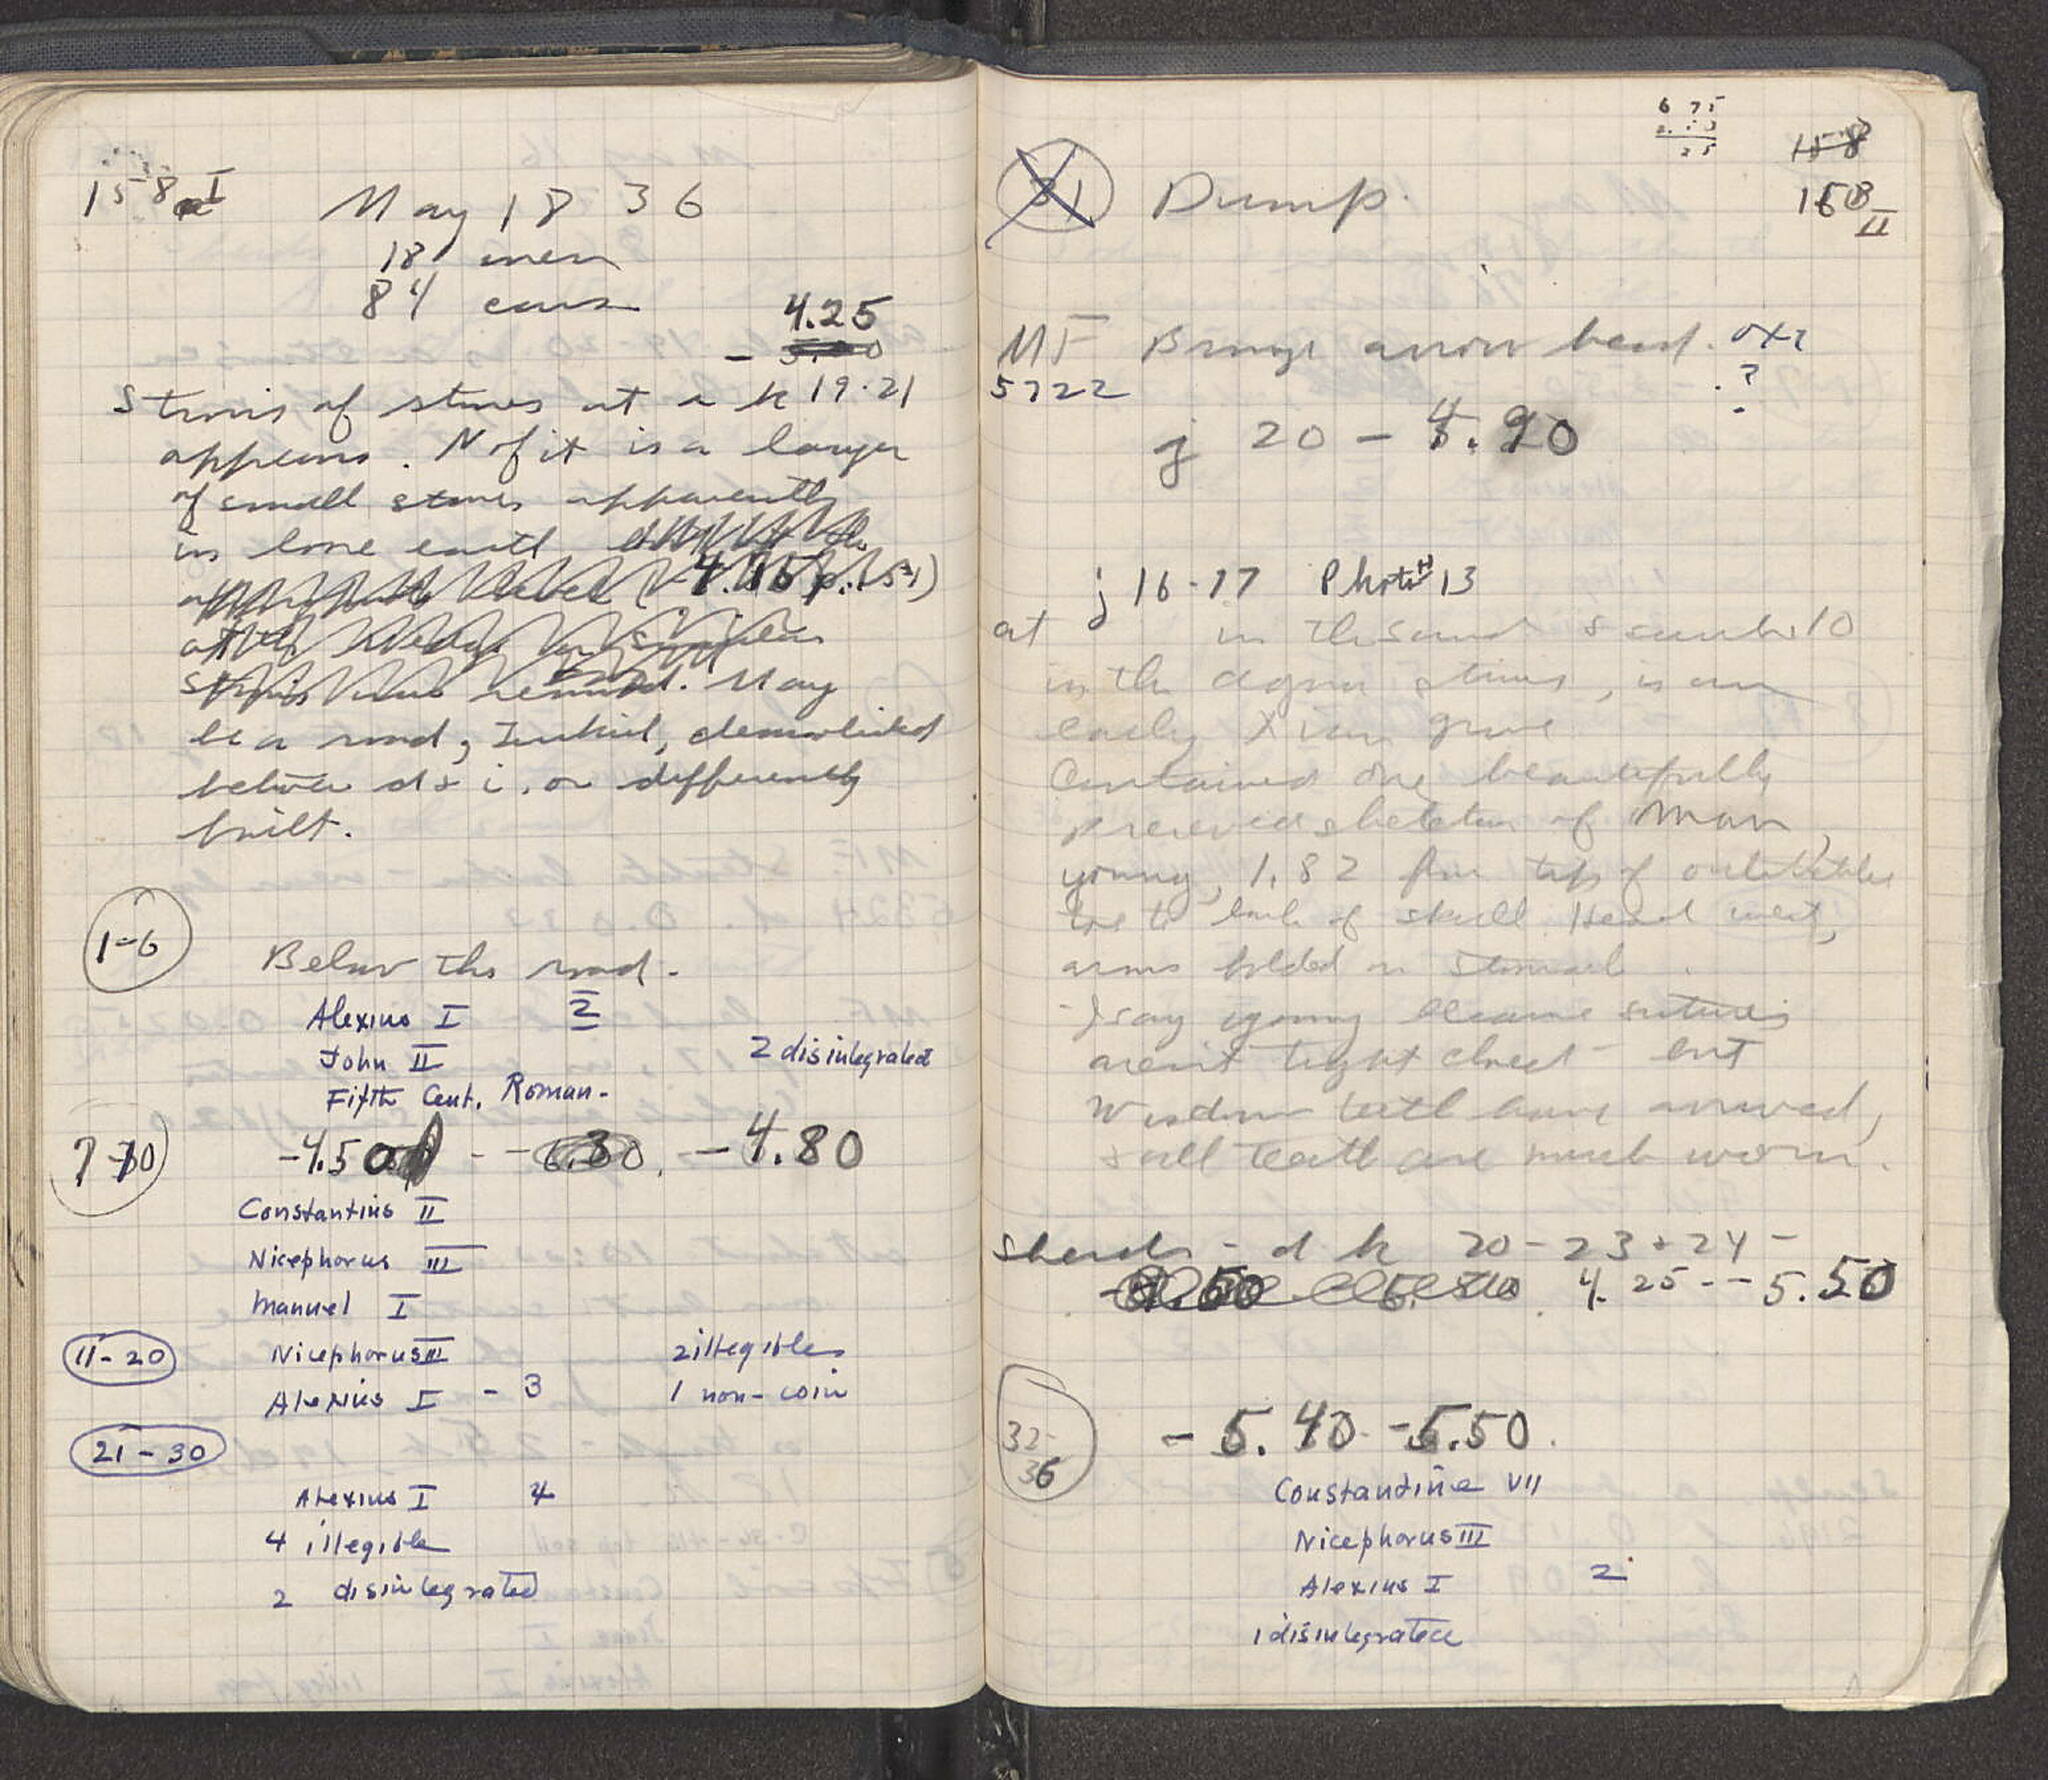 158 I
May 18 36
18 men
84 cars
4.25
-
Strosis of stones at a k 19-21
appears. N of it is a layer
of small stones apparently
in lone earth
4.
May
be a road, Turkish, demolished
between d + i, or differently
built.
1-6
Below the road.
Alexius I 2
John II 2 disintegrated
Fifth Cent. Roman-
7-10 -4.50 - -4.80
Constantius II
Nicephorus III
Manuel I
11-20 Nicephorus III 2 illegible
Alexius I - 3 1 non-coin
21-30
Alexius I 4
4 illegible
2 disintegrated
6 75
25
158
158 II
31 Dump.
MF Bronze arrow head.
5722 ?
j 20 - 4.90
j 16-17 Photo 13
at in the sand
in the agora strosis, is an
early Xian grave
Contained one beautifully
preserved skeleton of man,
young, 1.82 from top of
toe to back of skull. Head west,
arms folded on stomach.
- I say young because sutures
aren't tight closed - but
Wisdom teeth have arrived,
& all teeth are much worn.
Sherds - d k 20 - 23 + 24 -
4.25 - -5.50
32-36 - 5.40 - 5.50
Constantine VII
Nicephorus III
Alexius I 2
1 disintegrated